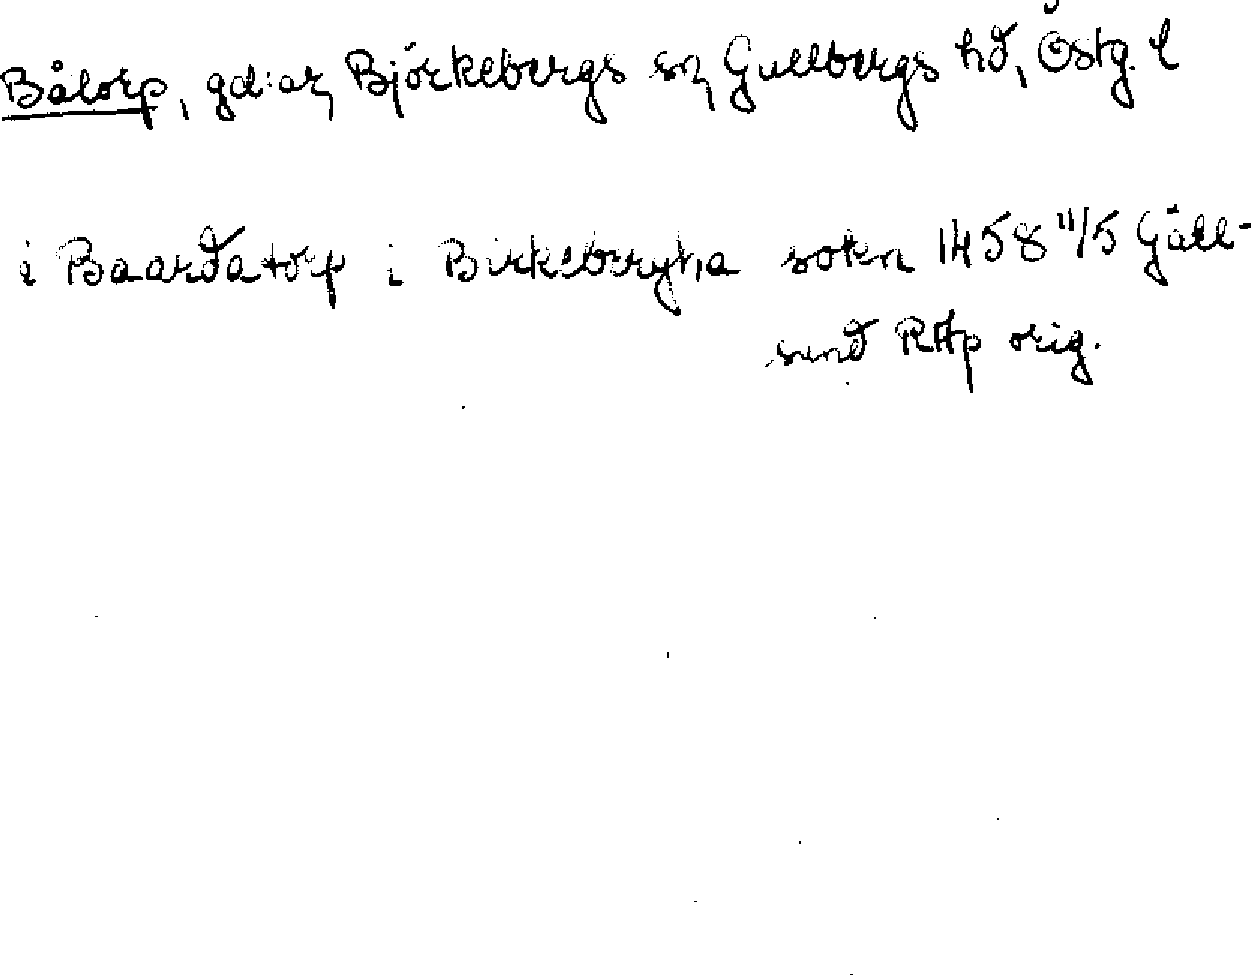 Bålorp, gd:ar, Björkebergs sn, Gullbergs hd, Östg. l
i Baardatorp i Birkebergha sokn 1458 11/5 Gäll-
sund RAp orig.